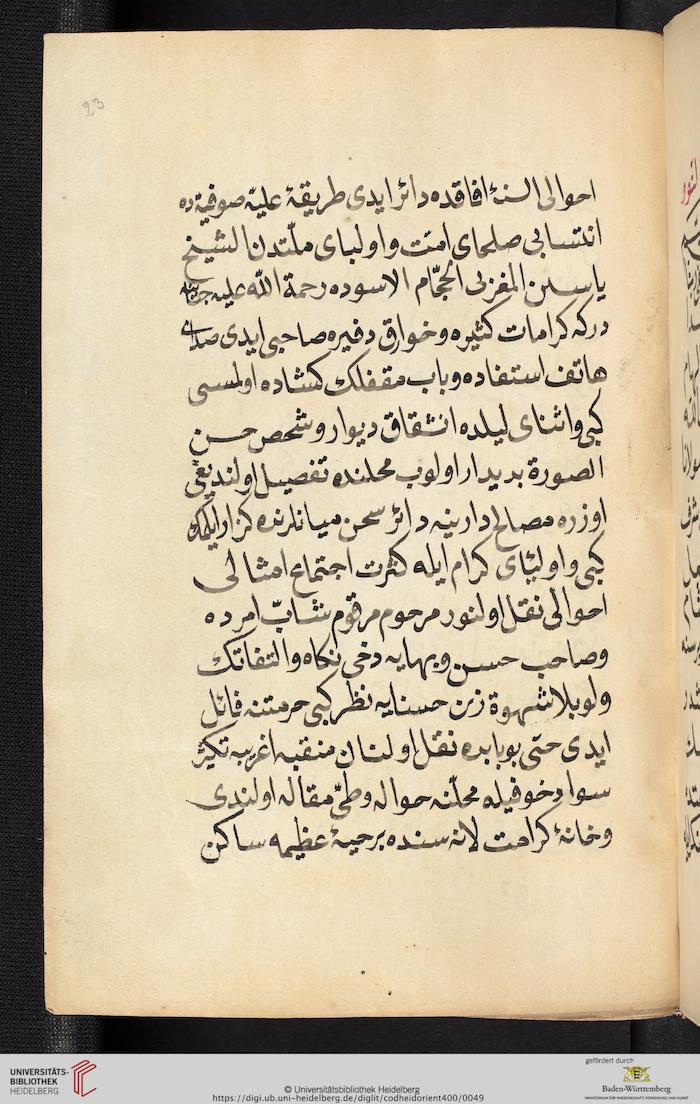 23
احوالی السنۀ افاقده دائر ایدی طریقۀ علیّه صوفیّه ده
انتسابی صلحای امّت و اولیای ملّتدن الشیخ
یاسین المغربی الحجّام الاسوده رحمة الله علیه
درکه کرامات کثیره و خوارق دفیره صاحبی ایدی صدای
هاتف استفاده و باب مقفلک کشاده اولمسی
کبی و اثنای لیلده انشقاق دیوار و شخص حسن
الصورة بدیدار اولوب محلنده تفصیل اولندیغی
اوزره مصالح دارینه دائر سخن میانلرنده کذار ایلمک
کبی و اولیای کرام ایله کثرت اجتماع امثالی
احوالی نقل اولنور مرحوم مرقوم شابّ امرده
و صاحب حسن و بهایه دخی نکاه و التفاتک
ولو بلا شهوة زن حسنایه نظر کبی حرمتنه قائل
ایدی حتی بو بابده نقل اولنان منقبه غریبه تکثیر
سواد خوفیله محلّنه حواله و طیّ مقاله اولندی
و خانۀ کرامت لانه سنده بر حیۀ عظیمه ساکن
UNIVERSITÄTS-
BIBLIOTHEK
HEIDELBERG
© Universitätsbibliothek Heidelberg
https://digi.ub.uni-heidelberg.de/diglit/codheidorient400/0049
gefördert durch
Baden-Württemberg
MINISTERIUM FÜR WISSENSCHAFT, FORSCHUNG UND KUNST